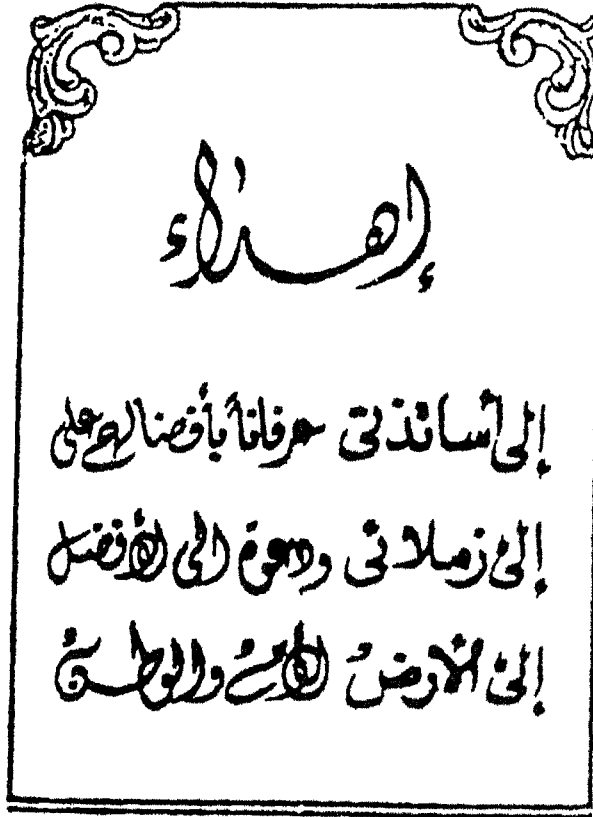 إهداء
إلى أساتذتي عرفاناً بأفضالهم علي
إلى زملائي ودعوة الى الأفضل
إلى الأرض الأم والوطن